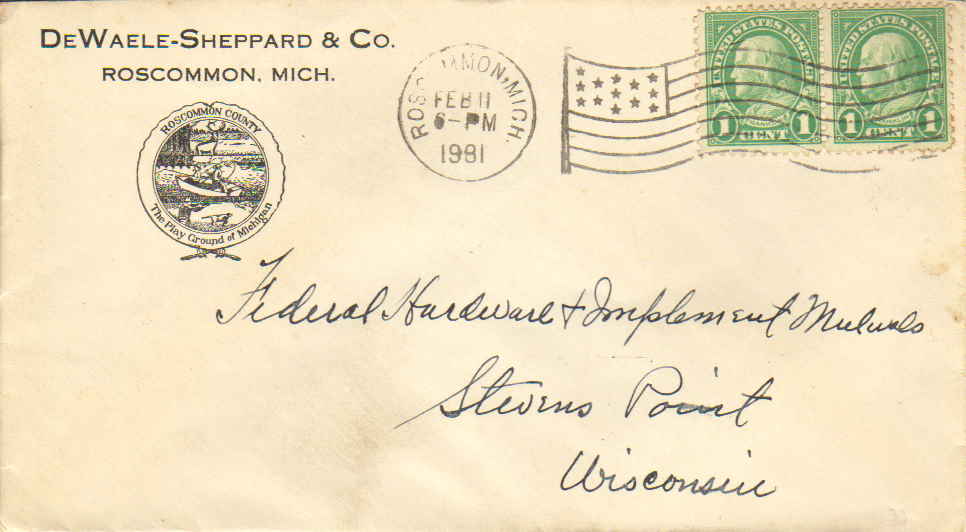 DEWAELE-SHEPPARD & CO.
ROSCOMMON, MICH.
ROSCOMMON COUNTY
The Play Ground of Michigan
MMON, MICH.
FEB 11
6-PM
1931
UNITED STATES POSTAGE
1 CENT 1
UNITED STATES POSTAGE
1 CENT 1
Federal Hardware & Implement Mutuals
Stevens Point
Wisconsin